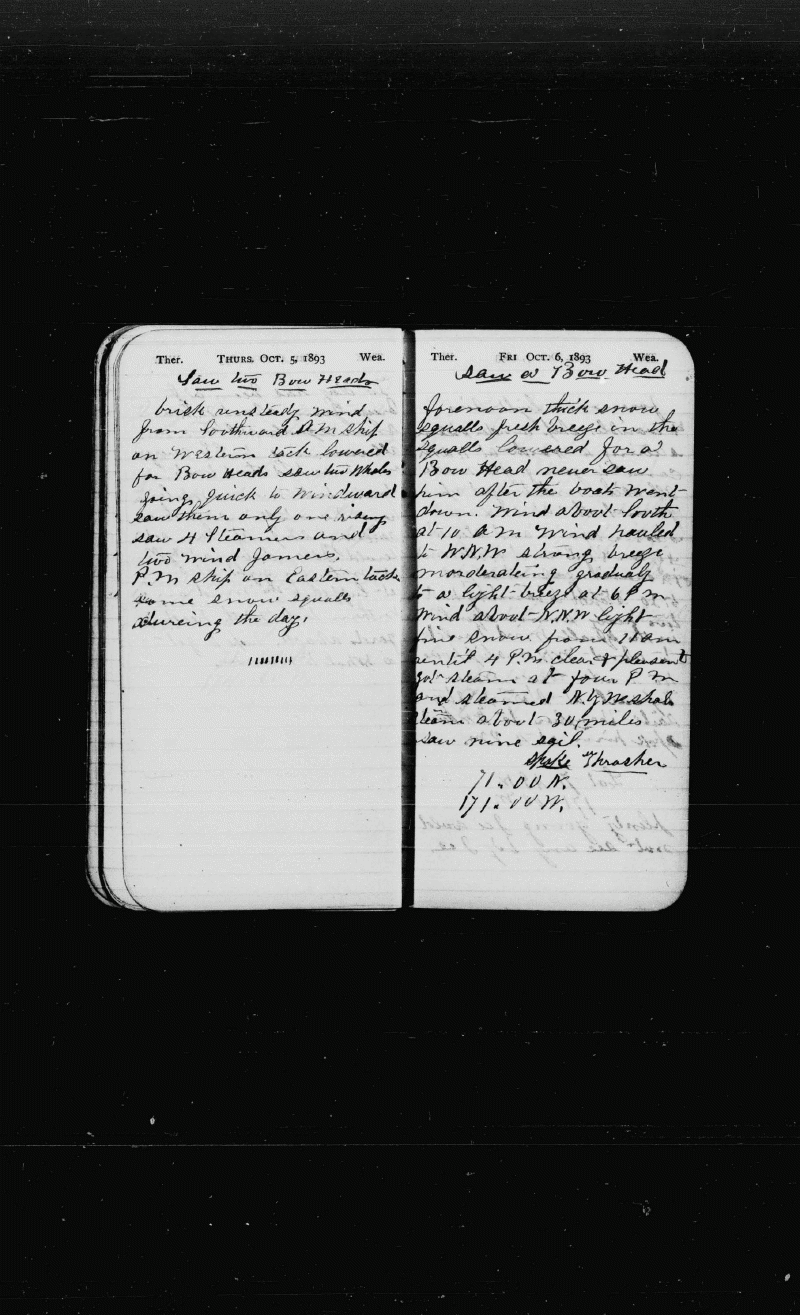 Ther. THURS. OCT. 5, 1893 Wea.
Saw two Bow Heads
brisk unsteady wind
from Southward A.M ship
on Western tack lowered
for Bow Heads saw two Whales
going quick to windward
saw them only one rising
saw 4 Steamers and
two wind Jamers,
P.M ship on Eastern tack
some snow squalls
dureing the day,
Ther. FRI OCT. 6, 1893 Wea.
saw a Bow Head
forenoon thick snow
squalls fresh breeze in the
squalls lowered for a
Bow Head never saw
him after the boats went
down. Wind about South
at 10 a m Wind hauled
to W.N.W strong breeze
morderateing gradualy
to a light breeze at 6 P m
Wind about N.N.W light
fine snow from 11 am
until 4 P.M clear & pleasent
got steam at four P M
and steamed N. by W
about 30 miles
saw nine sail.
spoke Thrasher
71. 00 N.
171. 00 W.